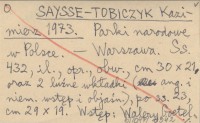 SAYSSE-TOBICZYK Kazi-
mierz 1973. Parki narodowe
w Polsce. — Warszawa. Ss.
432, il., opr., obw., cm 30 x 21,
oraz 2 luźne wkładki (ang. i
niem. wstęp i objaśn), po ss. 23,
cm 29 x 19. Wstęp: Walery Goetel.